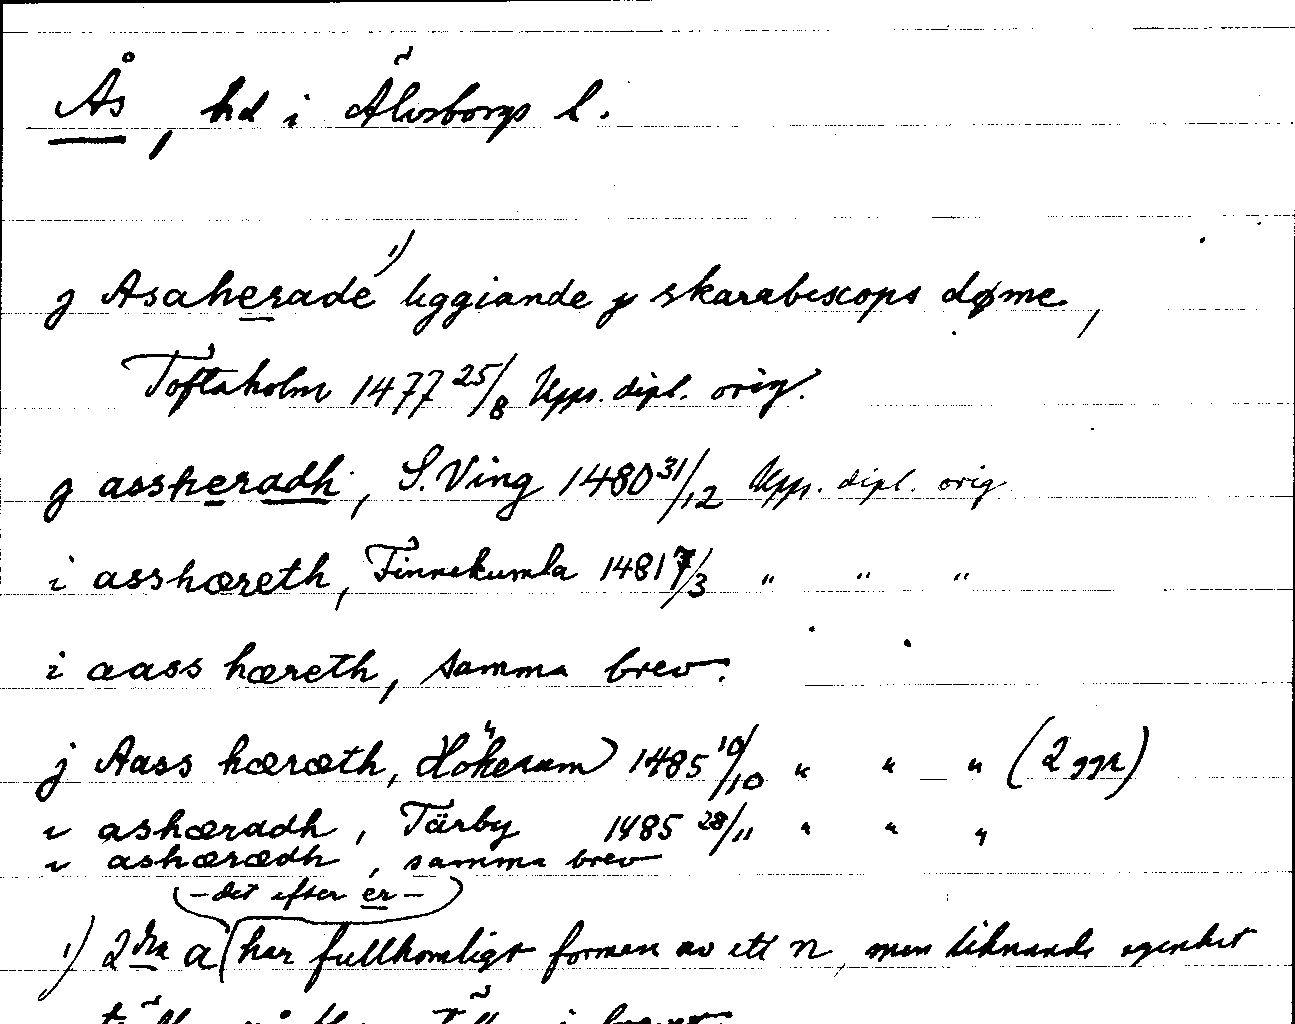 Ås, hd i Älvsborgs l.
j Asaherade 1) liggiande j skarabiscops døme,
Toftaholm 1477 25/8 Upps. dipl. orig.
j assheradh, S. Ving 1480 31/12 Upps. dipl. orig
i asshæreth, Finnekumla 1481 7/3 " " "
i aass hæreth, samma brev.
j Aass hæræth, Hökerum 1485 10/10 " " " (2 ggr)
i ashæradh, Tärby 1485 28/11 " " "
i ashærædh, samma brev
– det efter er –
1) 2dra a har fullkomligt formen av ett n, men liknande egenhet